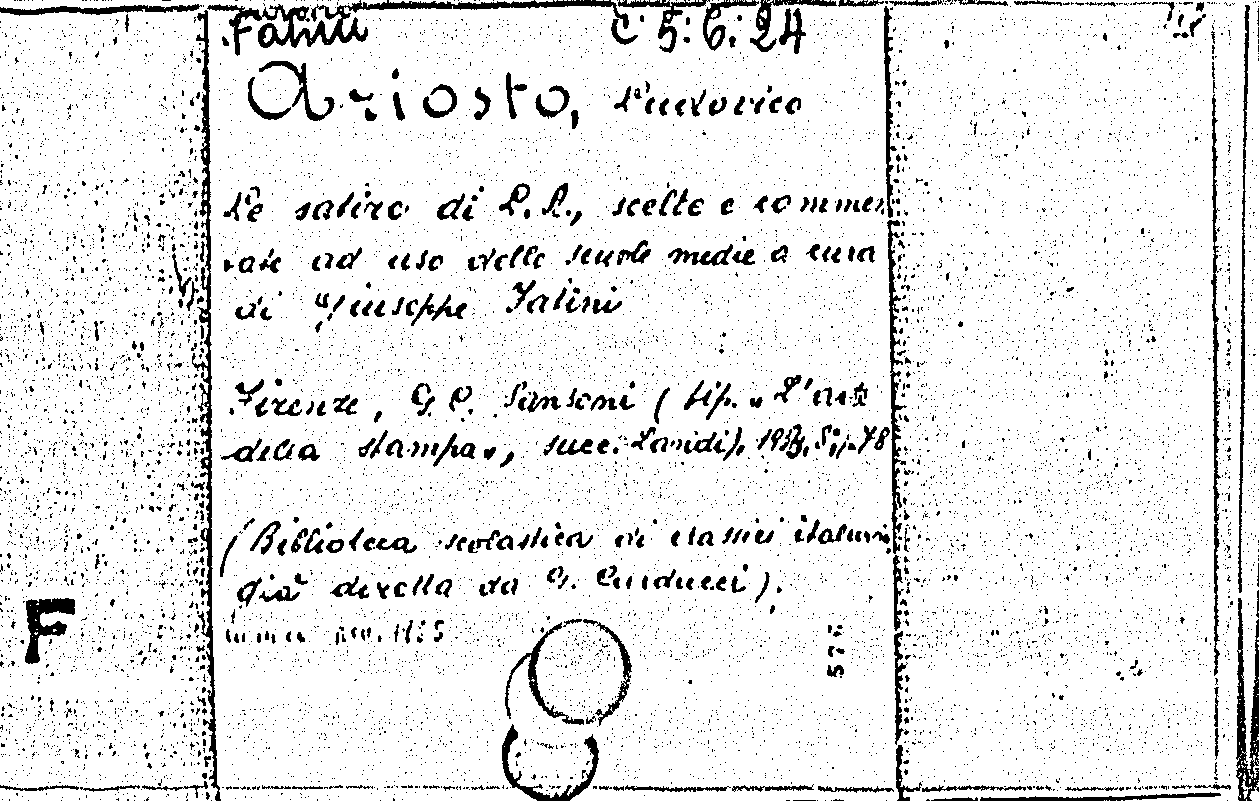 Fatini C 5:6:24
Ariosto, Ludovico
Le satire di L. A., scelte e commen
tate ad uso delle scuole medie a cura
di Giuseppe Fatini
Firenze, G. C. Sansoni (tip. „L'arte
della stampa„, succ. Landi),
(Biblioteca scolastica di classici italiani
già diretta da G. Carducci).
577
F